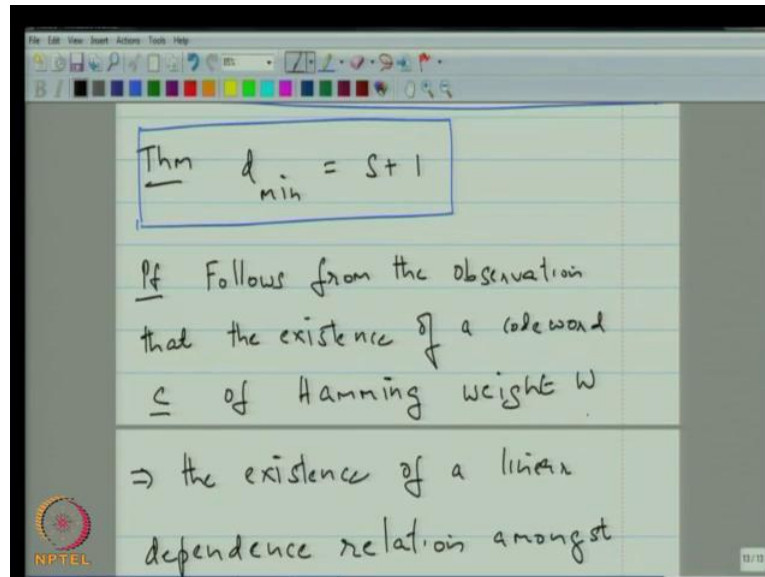 File Edit View Insert Actions Tools Help
B I
Thm d min = S + 1
Pf Follows from the observation
that the existence of a codeword
c of Hamming weight W
⇒ the existence of a linear
dependence relation amongst
NPTEL